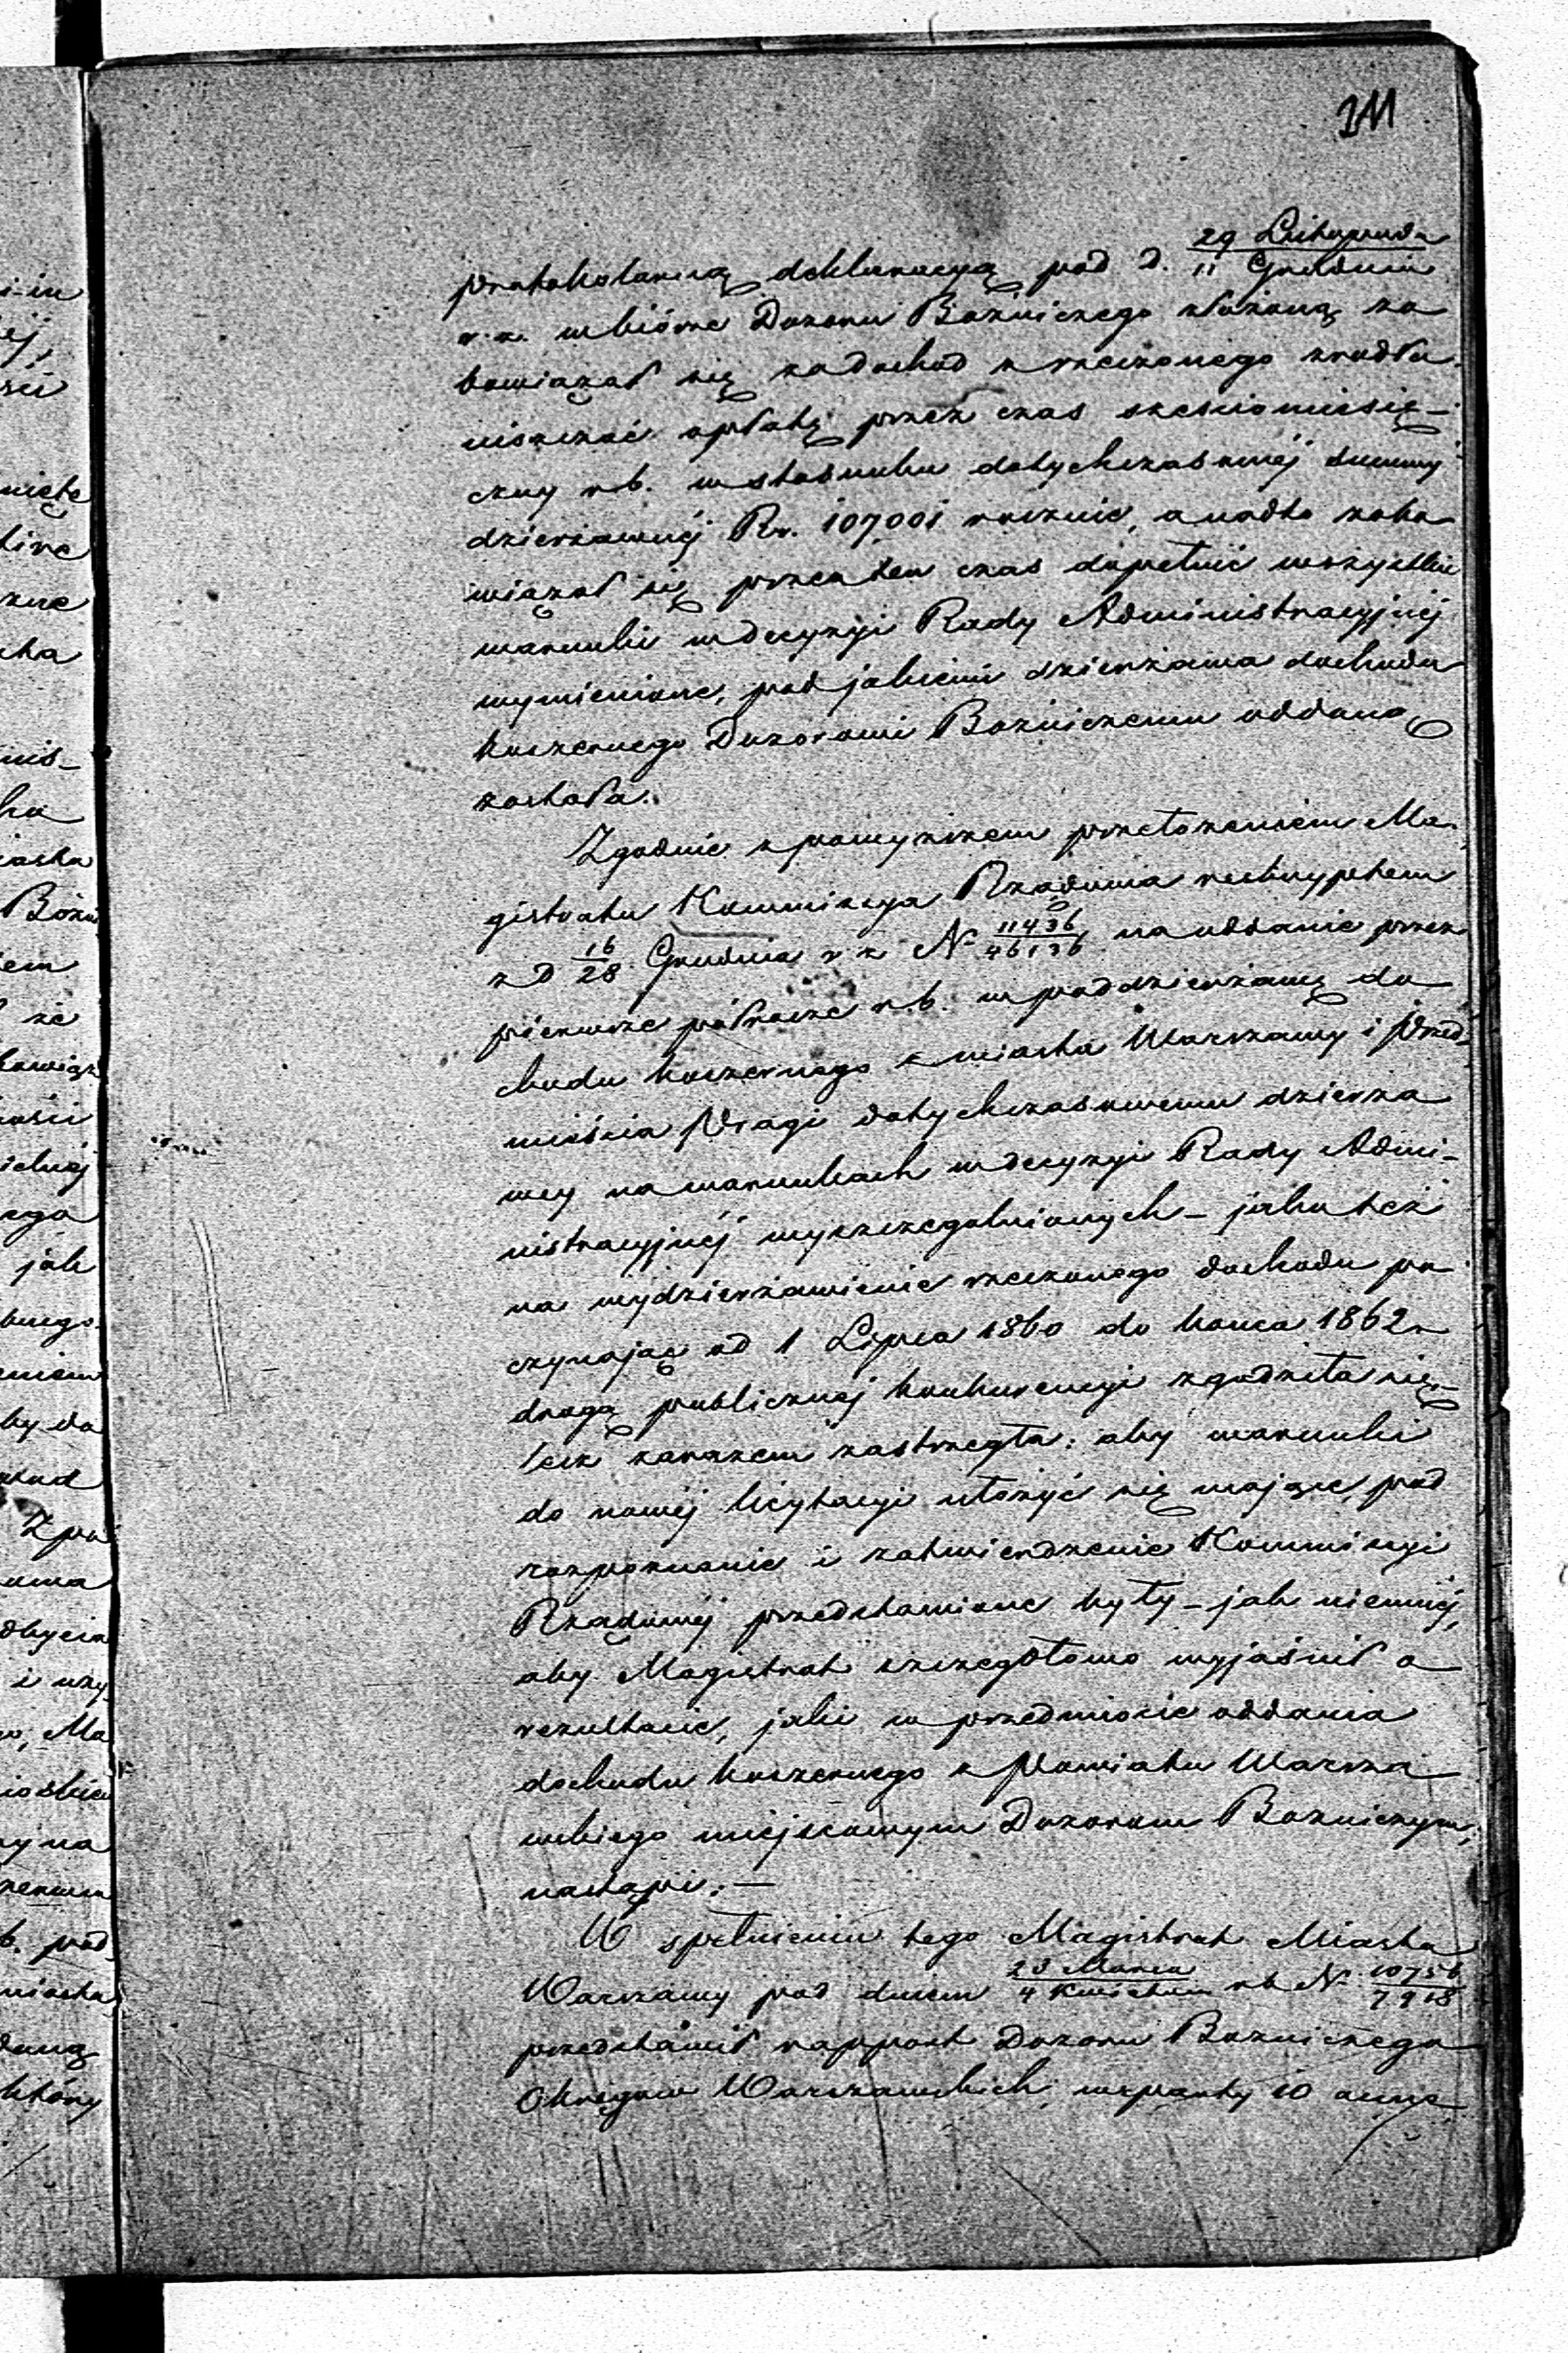 211
protokolarną deklaracyą pod d. 29 Listopada / 11 Grudnia
r. z. w biórze Dozoru Bożniczego złożoną, zo
bowiązał się za dochod z rzeczonego zrodła
uiszczać opłatę przez czas sześciomiesię-
czny r.b. w stosunku dotychczasowéj summy
dzierżawnéj Rr. 107,001 rocznie, a nadto zobo
wiązał się przez ten czas dopełnić wszystkie
warunki w decyzyi Rady Administracyjnéj
wymienione, pod jakiemi dzierżawa dochodu
koszernego Dozorowi Bożniczemu oddaną
została.
Zgodnie z powyższem przełożeniem Ma-
gistratu Kommissya Rządowa reskryptem
z D 16/28 Grudnia r z N 11436/46136 na oddanie przez
pierwsze półrocze r.b. w poddzierżawę do
chodu koszernego z miasta Warszawy i Przed-
mieścia Pragi dotychczasowemu dzierża
wcy na warunkach w decyzyi Rady Admi-
nistracyjnéj wyszczegolnionych – jako też
na wydzierżawienie rzeczonego dochodu po
czynając od 1 Lipca 1860 do końca 1862 r
drogą publicznej konkurencyi zgodziła się –
lecz zarazem zastrzegła: aby warunki
do nowéj licytacyi ułożyć się mające, pod
rozpoznanie i zatwierdzenie Kommissyi
Rządowéj przedstawione były – jak niemniéj,
aby Magistrat szczegółowo wyjaśnił o
rezultacie, jaki w przedmiocie oddania
dochodu koszernego z Powiatu Warsza
wskiego miejscowym Dozorom Bożniczym,
nastąpi. –
W spełnieniu tego Magistrat Miasta
Warszawy pod dniem 23 Marca / 4 Kwietnia rb N 10756/7918
przedstawił rapport Dozoru Bożniczego
Okręgow Warszawskich, wsparty 10 anne